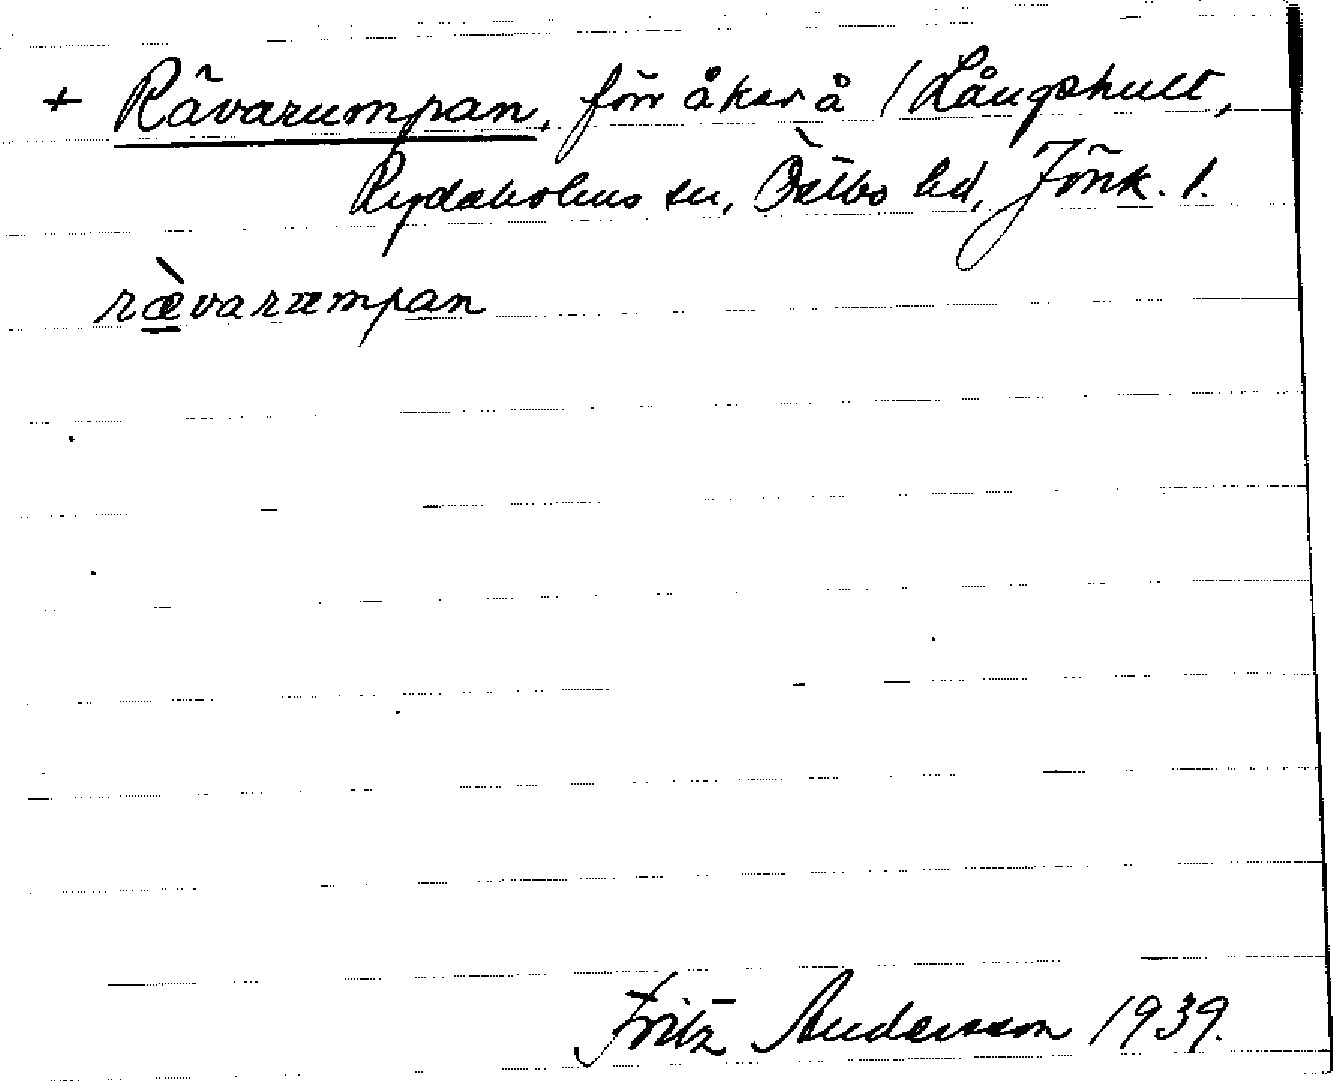 + Rävarumpan, förr åker å /Långshult,
Rydaholms sn, Östbo hd, Jönk. l.
rævarumpan
Fritz Andersson 1939.